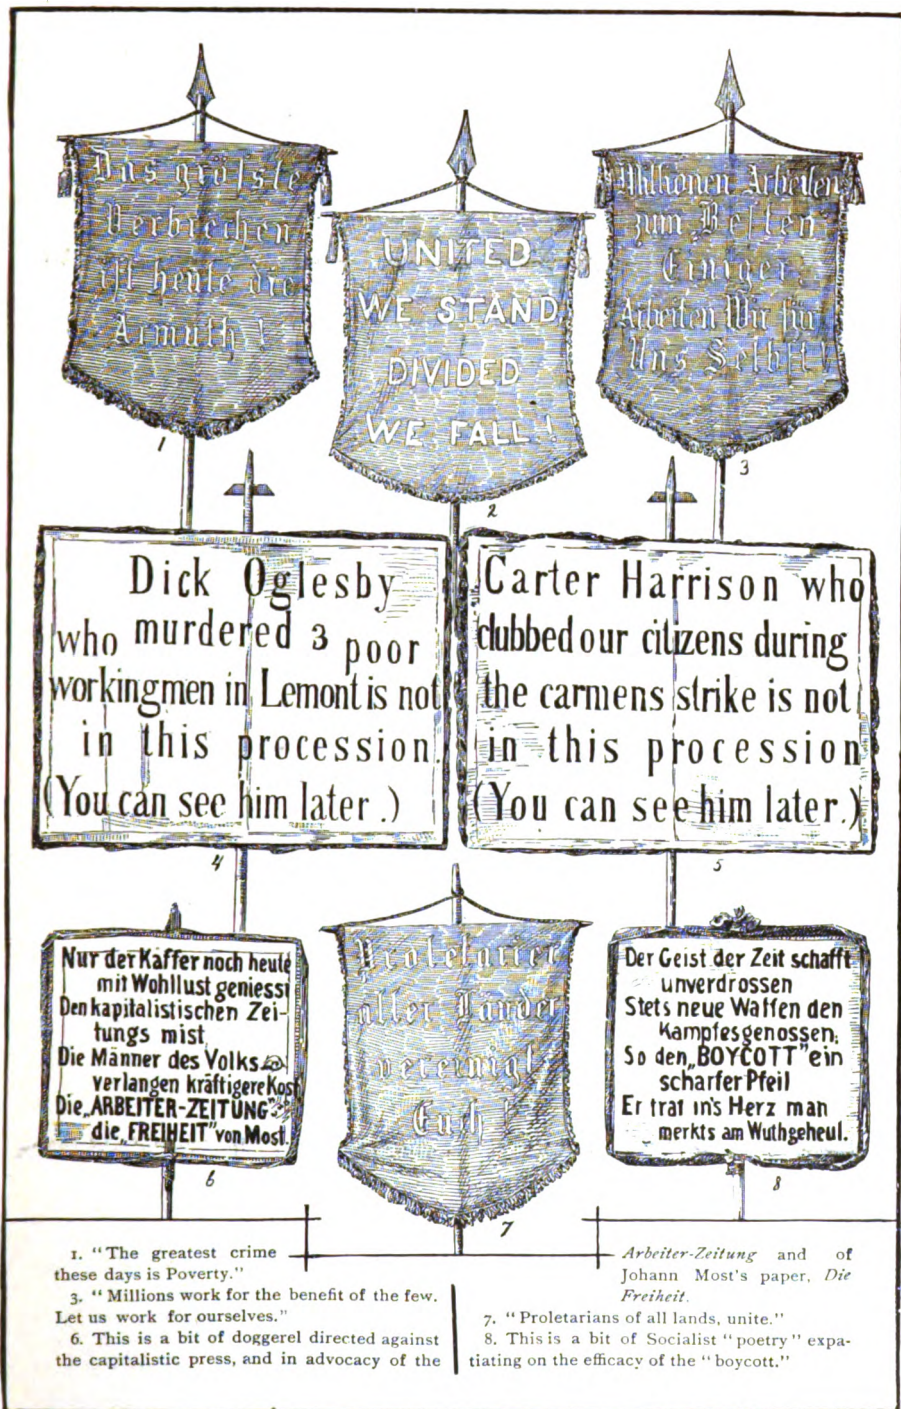 Das größte
Verbrechen
ist heute die
Armuth!
1
UNITED
WE STAND
DIVIDED
WE FALL!
2
Millionen Arbeiten
zum Besten
Einiger
Arbeiten Wir für
Uns Selbst!
3
Dick Oglesby
who murdered 3 poor
workingmen in Lemont is not
in this procession.
(You can see him later.)
4
Carter Harrison who
clubbed our citizens during
the carmens strike is not
in this procession
(You can see him later.)
5
Nur der Kaffer noch heute
mit Wohllust geniesst
Den kapitalistischen Zei-
tungs mist
Die Männer des Volks
verlangen kräftigere Kost
Die „ARBEITER-ZEITUNG"
die „FREIHEIT" von Most.
6
Proletarier
aller Länder
vereinigt
Euch!
7
Der Geist der Zeit schafft
unverdrossen
Stets neue Waffen den
Kampfesgenossen;
So den „BOYCOTT" ein
scharfer Pfeil
Er traf in's Herz man
merkts am Wuthgeheul.
8
1. "The greatest crime
these days is Poverty."
3. "Millions work for the benefit of the few.
Let us work for ourselves."
6. This is a bit of doggerel directed against
the capitalistic press, and in advocacy of the
Arbeiter-Zeitung and of
Johann Most's paper, Die
Freiheit.
7. "Proletarians of all lands, unite."
8. This is a bit of Socialist "poetry" expa-
tiating on the efficacy of the "boycott."